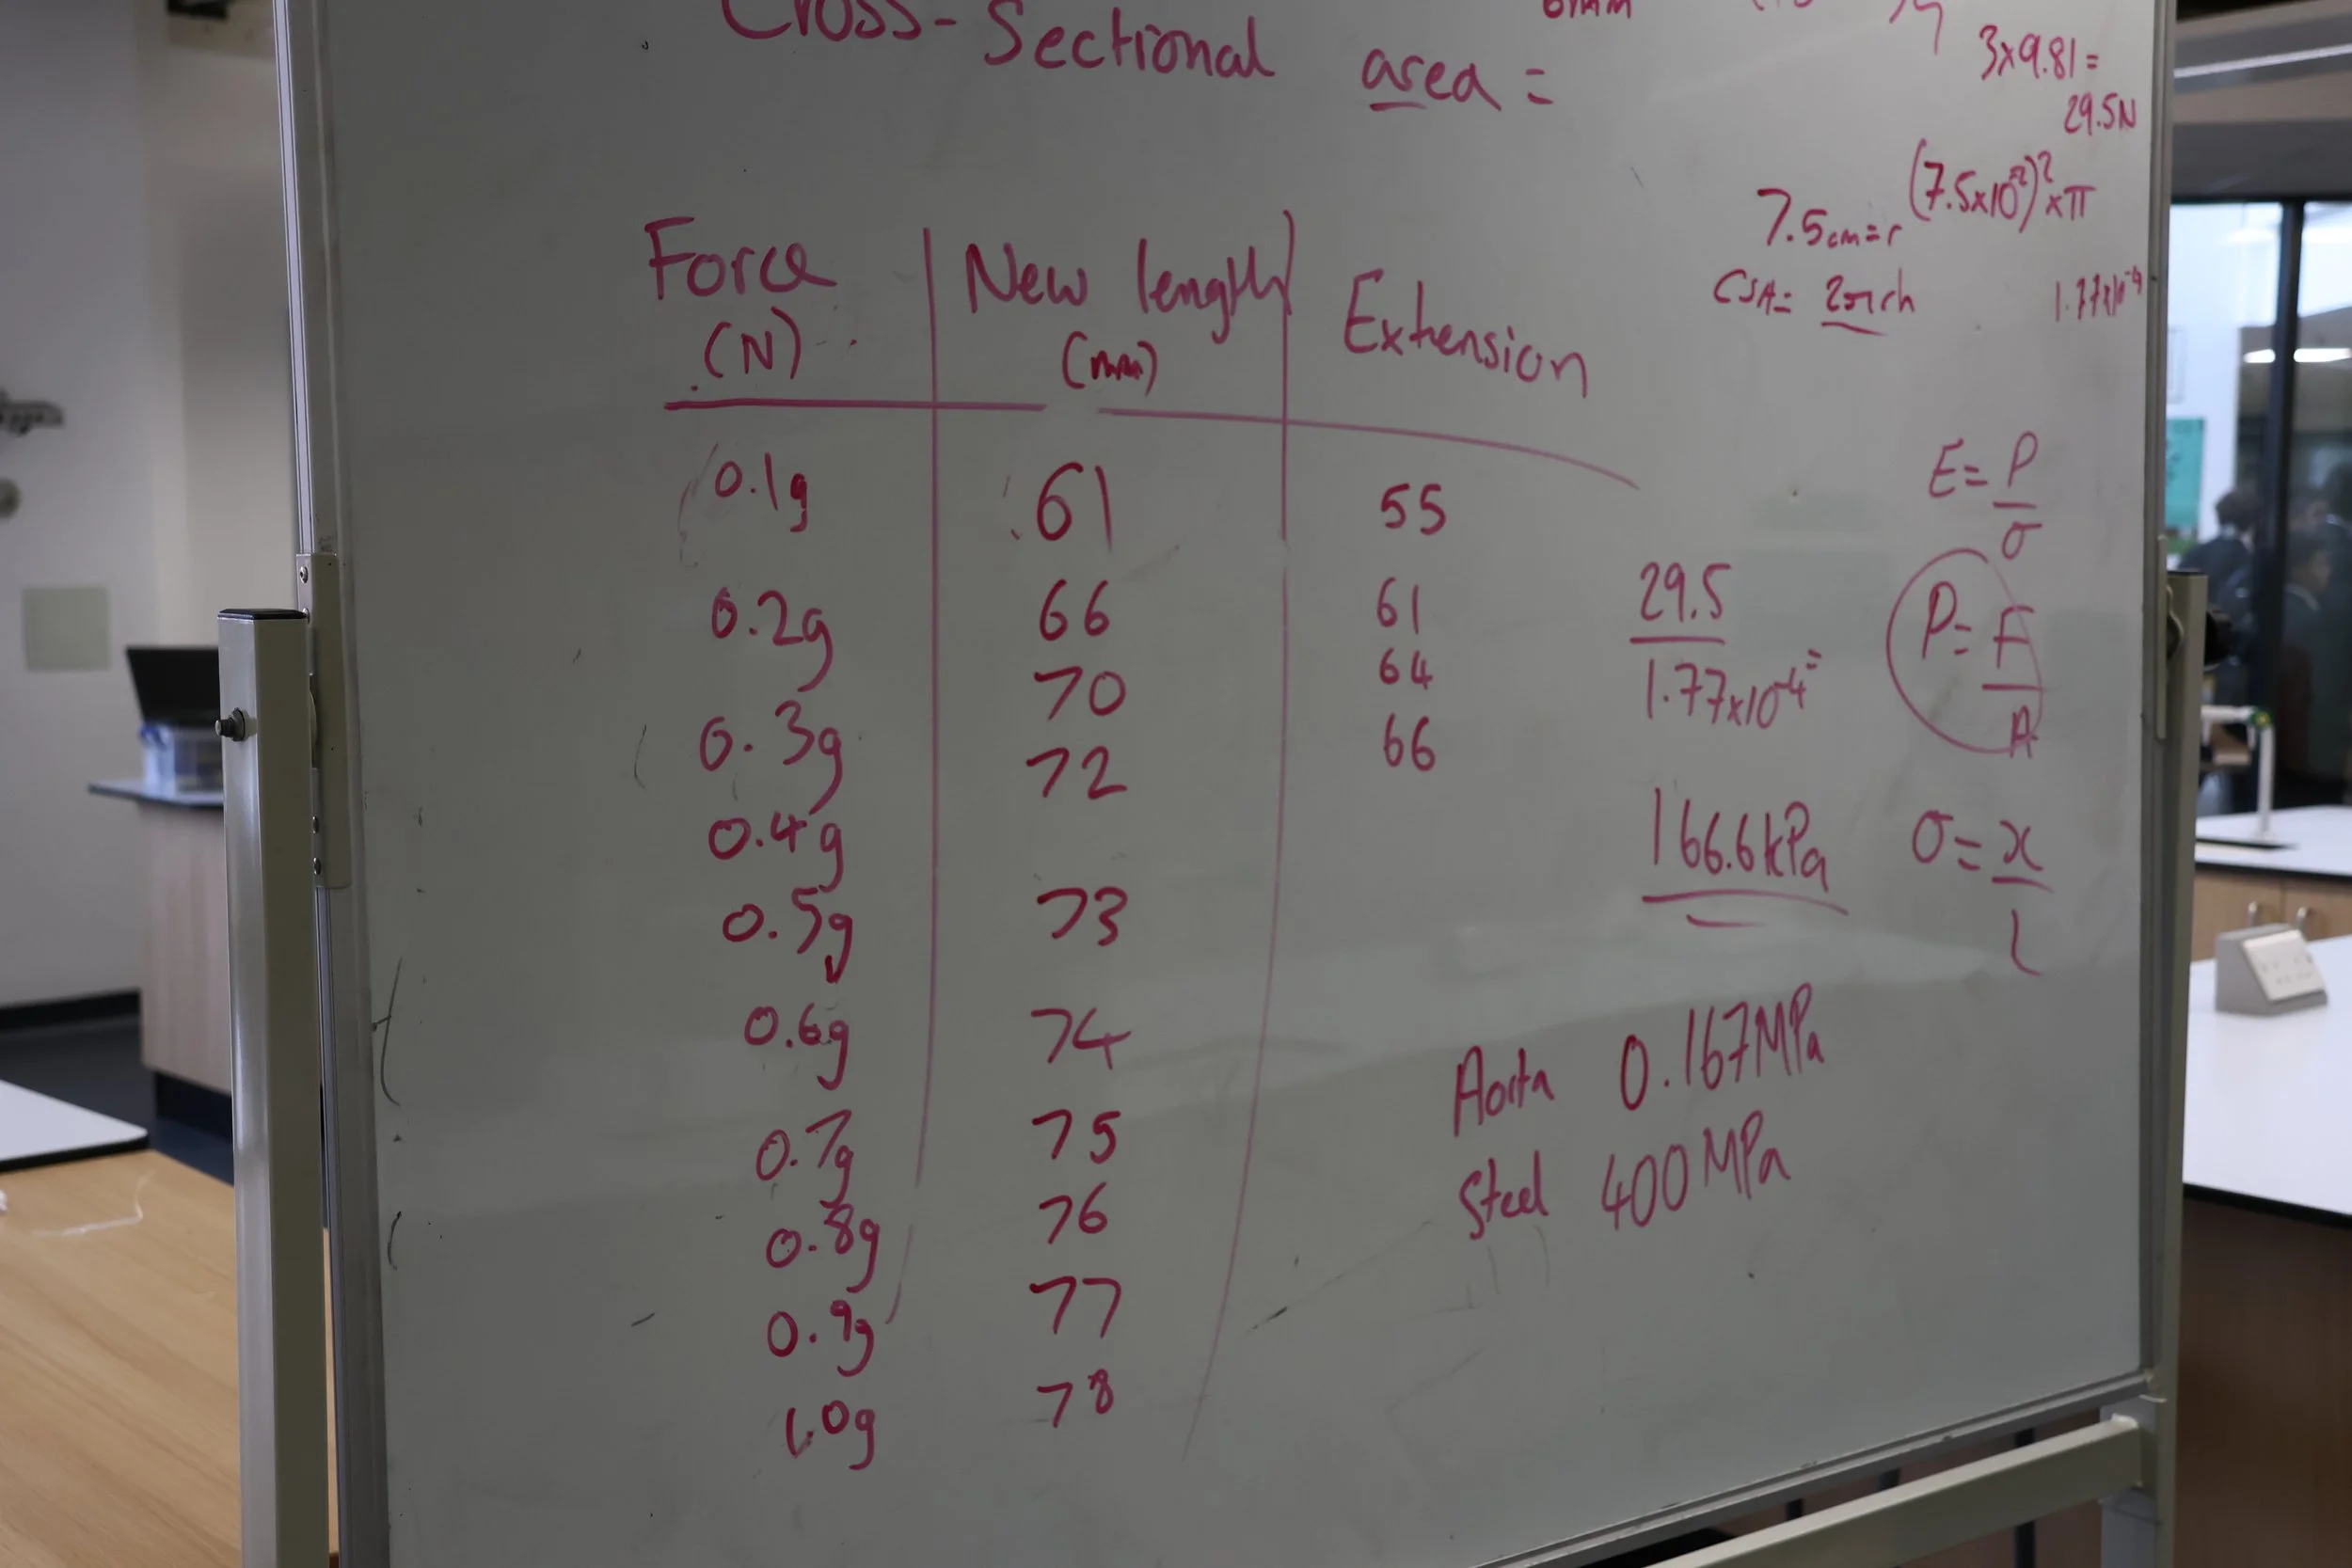 Cross-Sectional area =
6mm
3×9.81=
29.5N
7.5cm=r (7.5×10⁻²)²×π
CSA= 2πrh
1.77×10⁻⁴
Force (N) New length (mm) Extension
0.1g 61 55
0.2g 66 61
0.3g 70 64
0.4g 72 66
0.5g 73
0.6g 74
0.7g 75
0.8g 76
0.9g 77
1.0g 78
E=P/σ
P=F/A
σ=x/L
29.5/1.77×10⁻⁴=
166.6kPa
Aorta 0.167MPa
Steel 400MPa